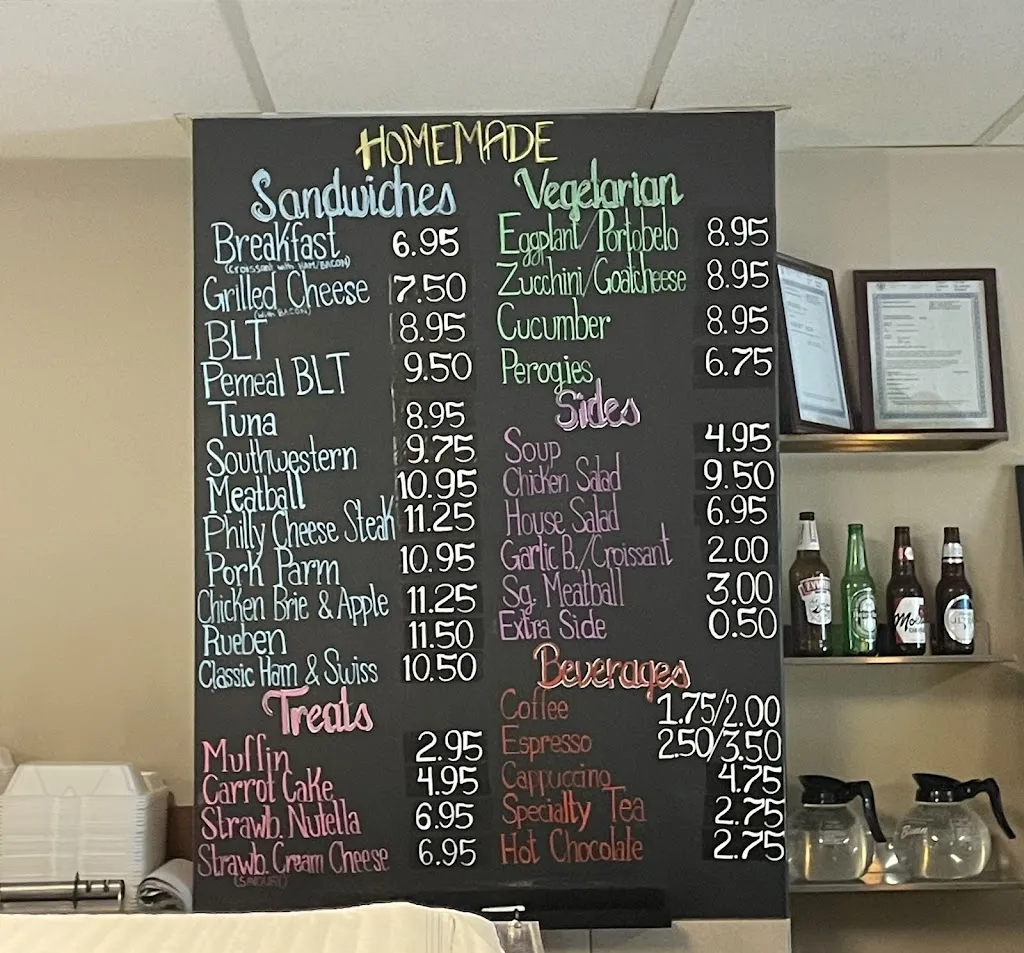 HOMEMADE
Sandwiches
Breakfast 6.95
(Croissant with HAM/BACON)
Grilled Cheese 7.50
(with BACON)
BLT 8.95
Pemeal BLT 9.50
Tuna 8.95
Southwestern 9.75
Meatball 10.95
Philly Cheese Steak 11.25
Pork Parm 10.95
Chicken Brie & Apple 11.25
Rueben 11.50
Classic Ham & Swiss 10.50
Treats
Muffin 2.95
Carrot Cake 4.95
Strawb. Nutella 6.95
Strawb. Cream Cheese 6.95
(SAVOURY)
Vegetarian
Eggplant/Portobelo 8.95
Zucchini/Goatcheese 8.95
Cucumber 8.95
Perogies 6.75
Sides
Soup 4.95
Chicken Salad 9.50
House Salad 6.95
Garlic B./Croissant 2.00
Sg. Meatball 3.00
Extra Side 0.50
Beverages
Coffee 1.75/2.00
Espresso 2.50/3.50
Cappuccino 4.75
Specialty Tea 2.75
Hot Chocolate 2.75